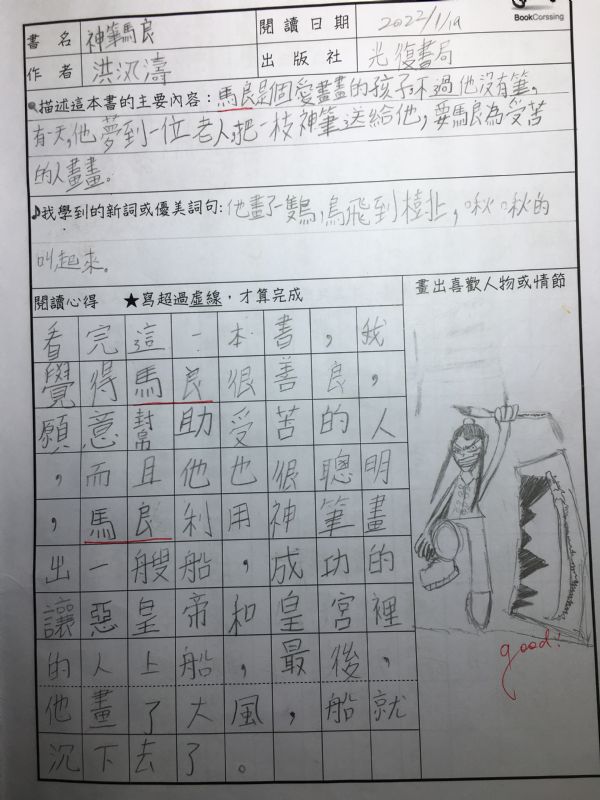 BookCorssing
書名 神筆馬良 閱讀日期 2022/1/19
作者 洪汛濤 出版社 光復書局
描述這本書的主要內容：馬良是個愛畫畫的孩子,不過他沒有筆,
有一天,他夢到一位老人,把一枝神筆送給他,要馬良為受苦
的人畫畫。
♪我學到的新詞或優美詞句：他畫了雙鳥,鳥飛到樹上,啾啾的
叫起來。
閱讀心得 ★寫超過虛線，才算完成
畫出喜歡人物或情節
看完這一本書，我
覺得馬良很善良，
願意幫助受苦的人
，而且他也很聰明
，馬良利用神筆畫
出一艘船，成功的
讓惡皇帝和皇宮裡
的人上船，最後，
他畫了大風，船就
沉下去了。
good!